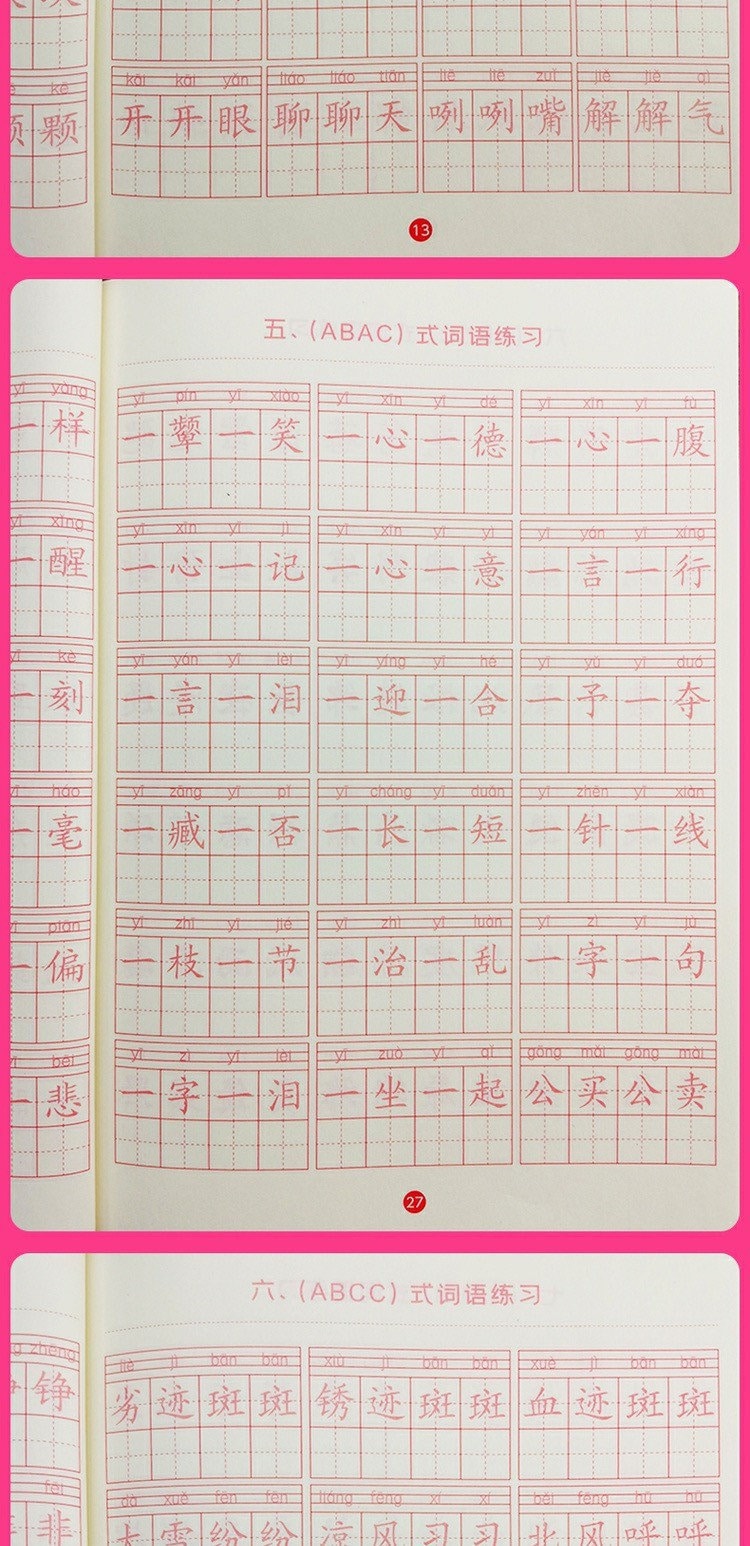 kē kāi kāi yǎn liáo liáo tiān liě liě zuǐ jiě jiě qì
颗 开开眼 聊聊天 咧咧嘴 解解气
13
五、(ABAC) 式词语练习
yī yàng yī pín yī xiào yī xīn yī dé yī xīn yī fù
一样 一颦一笑 一心一德 一心一腹
yī xǐng yī xīn yī jì yī xīn yī yì yī yán yī xíng
一醒 一心一记 一心一意 一言一行
yī kè yī yán yī lèi yī yíng yī hé yī yǔ yī duó
一刻 一言一泪 一迎一合 一予一夺
háo yī zāng yī pǐ yī cháng yī duǎn yī zhēn yī xiàn
一毫 一臧一否 一长一短 一针一线
piān yī zhī yī jié yī zhì yī luàn yī zì yī jù
一偏 一枝一节 一治一乱 一字一句
bēi yī zì yī lèi yī zuò yī qǐ gōng mǎi gōng mài
一悲 一字一泪 一坐一起 公买公卖
27
六、(ABCC) 式词语练习
zhēng liè jì bān bān xiù jì bān bān xuè jì bān bān
铮 劣迹斑斑 锈迹斑斑 血迹斑斑
fēi dà xuě fēn fēn liáng fēng xí xí běi fēng hū hū
非 大雪纷纷 凉风习习 北风呼呼